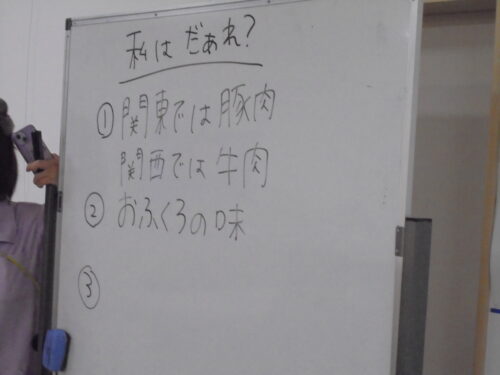 私は だぁれ?
① 関東では豚肉
関西では牛肉
② おふくろの味
③